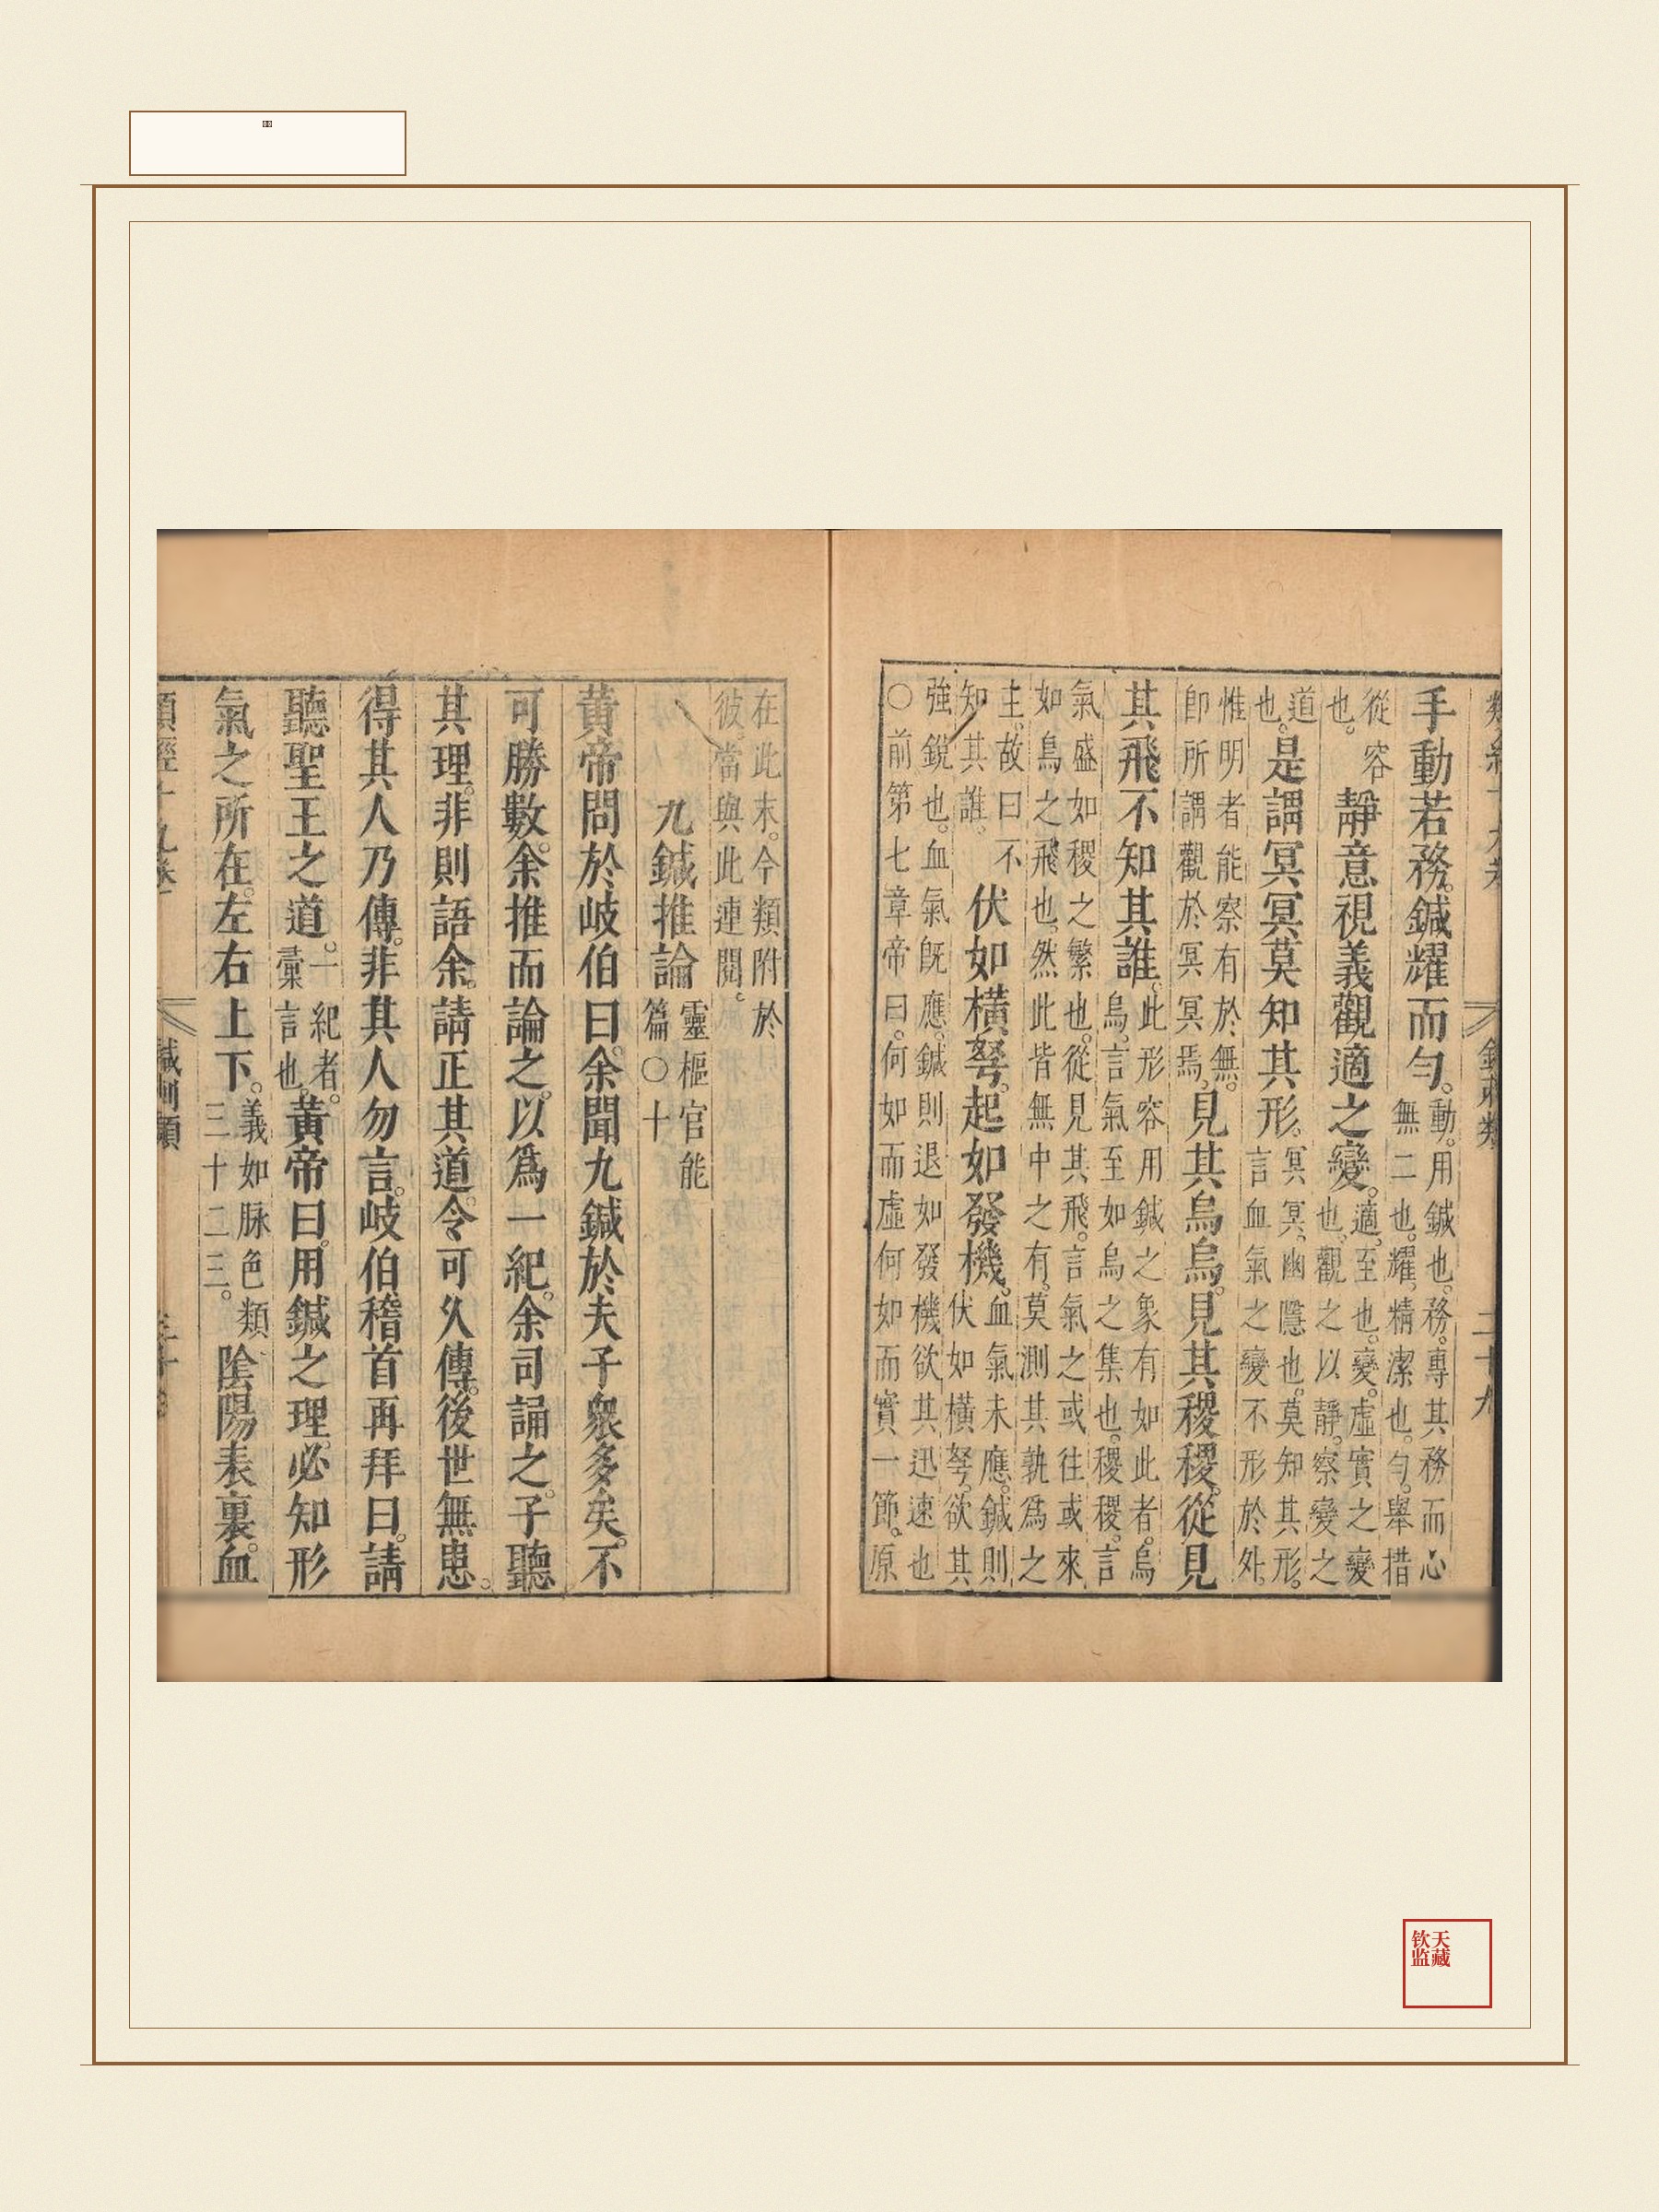 手動若務。鍼耀而勻。動。用鍼也。務。專其務而心無二也。耀。精潔也。勻。舉措
從容也。靜意視義觀適之變。適。至也。變。虛實之變也。觀之以靜。察變之
道也。是謂冥冥莫知其形。冥冥。幽隱也。莫知其形。言血氣之變不形於外。
惟明者能察有於無。卽所謂觀於冥冥焉。見其烏烏。見其稷稷。從見
其飛不知其誰。此形容用鍼之象有如此者。烏烏。言氣至如烏之集也。稷稷。言
氣盛如稷之繁也。從見其飛。言氣之或往或來如鳥之飛也。然此皆無中之有。莫測其孰爲之
主故曰不知其誰。伏如橫弩。起如發機。血氣未應。鍼則伏如橫弩。欲其
強銳也。血氣旣應。鍼則退如發機欲其迅速也○前第七章帝曰。何如而虛何如而實一節。原
在此末。今類附於彼。當與此連閱。
九鍼推論 靈樞官能篇○十
黃帝問於岐伯曰。余聞九鍼於夫子衆多矣。不
可勝數。余推而論之。以爲一紀。余司誦之。子聽
其理。非則語余。請正其道。令可久傳。後世無患。
得其人乃傳。非其人勿言。岐伯稽首再拜曰。請
聽聖王之道。一紀者。彙言也。黃帝曰。用鍼之理。必知形
氣之所在。左右上下。義如脉色類三十二三。陰陽表裏。血
類經十九卷
鍼刺類
天藏
钦监